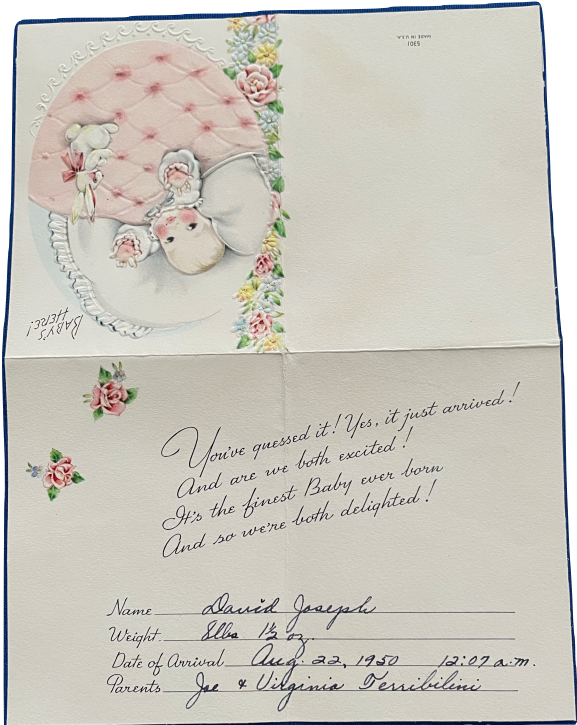 5301
MADE IN U.S.A.
BABY'S
HERE!
You've guessed it! Yes, it just arrived!
And are we both excited!
It's the finest Baby ever born
And so we're both delighted!
Name David Joseph
Weight 8lbs 1½ oz.
Date of Arrival Aug. 22, 1950 12:07 a.m.
Parents Joe & Virginia Terribilini